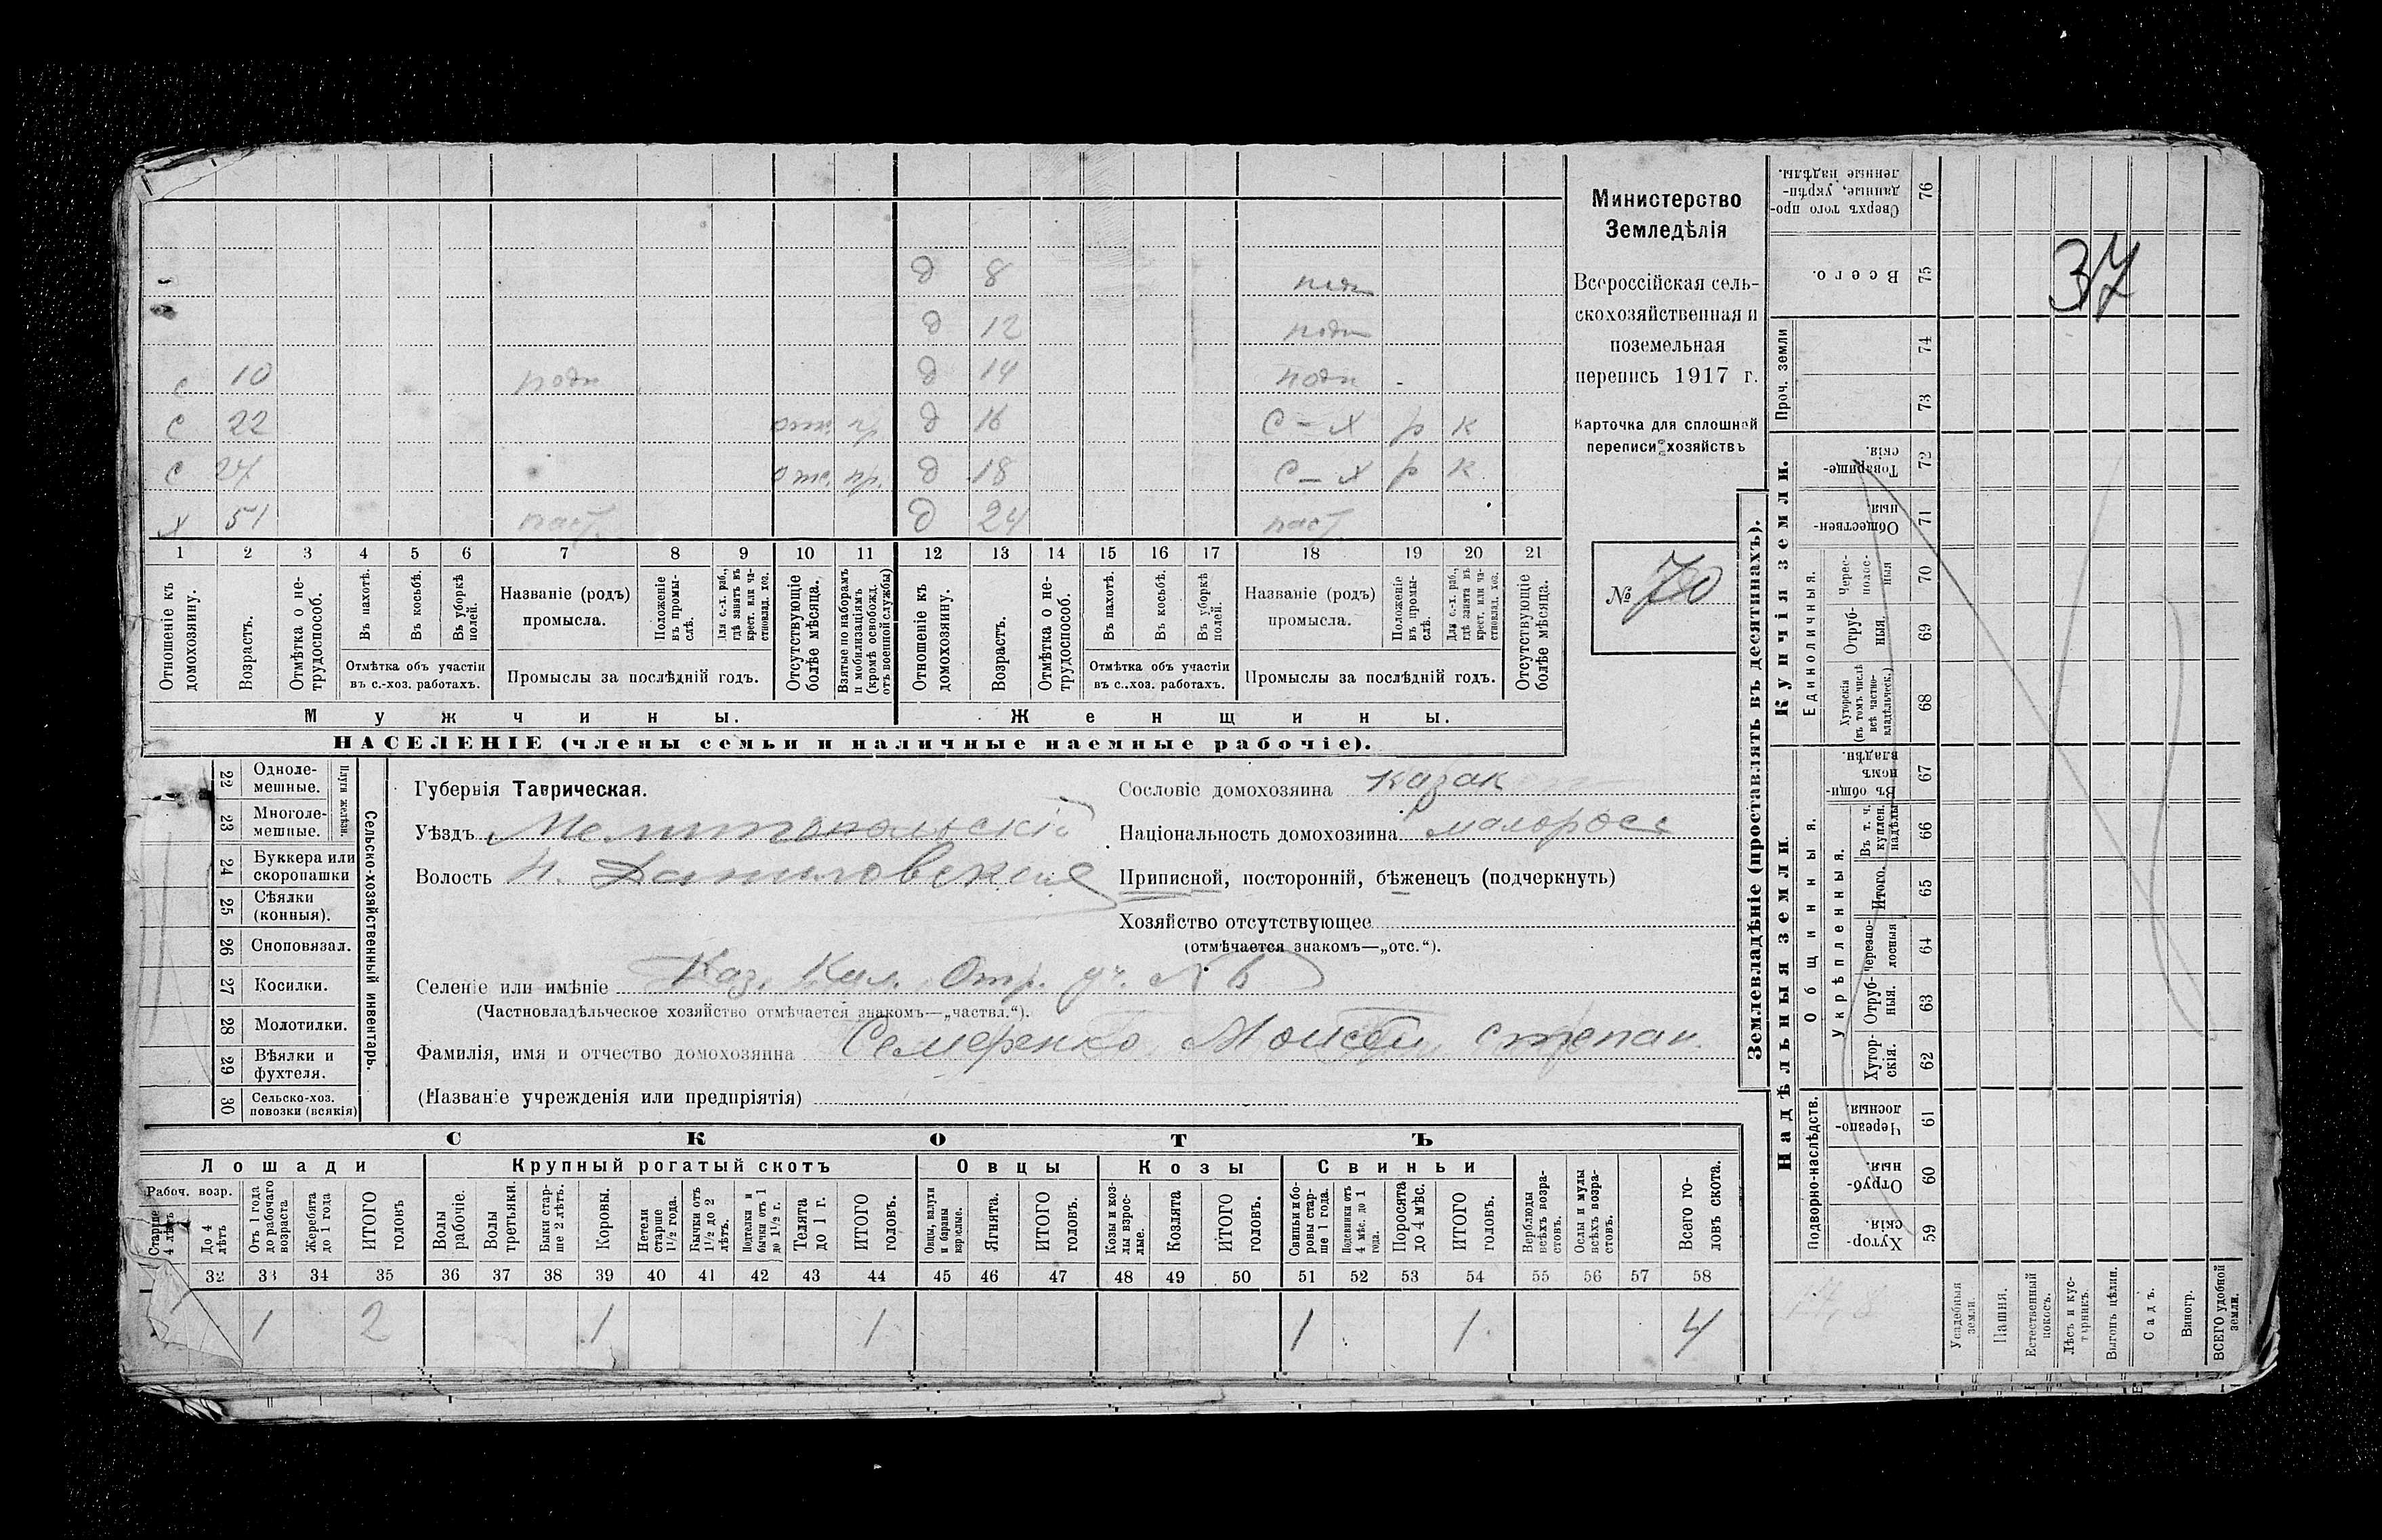 Министерство
Земледѣлія
Всероссійская сель-
скохозяйственная и
поземельная
перепись 1917 г.
Карточка для сплошной
переписи хозяйствъ
№ 70
37
д 8
д 12
с 10 подп д 14 подп
с 22 д 16 с-х р к
с 24 д 18 с-х р к
х 51 паст д 24 паст
1 2 3 4 5 6 7 8 9 10 11 12 13 14 15 16 17 18 19 20 21
Отношеніе къ домохозяину.
Возрастъ.
Отмѣтка о не-трудоспособ.
Въ пахотѣ.
Въ косьбѣ.
Въ уборкѣ полей.
Отмѣтка объ участіи
въ с.-хоз. работахъ.
Названіе (родъ)
промысла.
Положеніе въ промы-слѣ.
Для с.-х. раб., гдѣ занятъ въ крест. или ча-стновлад. хоз.
Промыслы за послѣдній годъ.
Отсутствующіе болѣе мѣсяца.
Взятые по наборамъ и мобилизаціямъ (кромѣ освобожд. отъ военной службы)
Отношеніе къ домохозяину.
Возрастъ.
Отмѣтка о не-трудоспособ.
Въ пахотѣ.
Въ косьбѣ.
Въ уборкѣ полей.
Отмѣтка объ участіи
въ с..хоз. работахъ.
Названіе (родъ)
промысла.
Положеніе въ промы-слѣ.
Для с.-х. раб., гдѣ занята въ крест. или ча-стновлад. хоз.
Промыслы за послѣдній годъ.
Отсутствующіе болѣе мѣсяца.
Мужчины. Женщины.
НАСЕЛЕНІЕ (члены семьи и наличные наемные рабочіе).
Сельско-хозяйственный инвентарь.
Плуги желѣзн.
22 Одноле-мешные.
23 Многоле-мешные.
24 Буккера или скоропашки
25 Сѣялки (конныя).
26 Сноповязал.
27 Косилки.
28 Молотилки.
29 Вѣялки и фухтеля.
30 Сельско-хоз. повозки (всякія)
Губернія Таврическая.
Уѣздъ Мелитопольскій
Волость Н. Даниловская
Селеніе или имѣніе Каз. Кал. Отр. уч. N 6
(Частновладѣльческое хозяйство отмѣчается знакомъ—„частвл.“).
Фамилія, имя и отчество домохозяина Семеренко Моисей степан.
(Названіе учрежденія или предпріятія)
Сословіе домохозяина казак
Національность домохозяина малоросс
Приписной, посторонній, бѣженецъ (подчеркнуть)
Хозяйство отсутствующее
(отмѣчается знакомъ—„отс.“).
СКОТЪ
Лошади Крупный рогатый скотъ Овцы Козы Свиньи
Рабоч. возр.
Старше 4 лѣтъ
До 4 лѣтъ
Отъ 1 года до рабочаго возраста
Жеребята до 1 года
ИТОГО головъ
Волы рабочіе.
Волы третьяки.
Быки стар-ше 2 лѣтъ.
Коровы.
Нетели старше 1½ года.
Бычки отъ 1½ до 2 лѣтъ.
Подтелки и бычки отъ 1 до 1½ г.
Телята до 1 г.
ИТОГО головъ.
Овцы, валухи и бараны взрослые.
Ягнята.
ИТОГО головъ.
Козы и коз-лы взрос-лые.
Козлята
ИТОГО головъ.
Свиньи и бо-ровы стар-ше 1 года.
Подсвинки отъ 4 мѣс. до 1 года.
Поросята до 4 мѣс.
ИТОГО головъ.
Верблюды всѣхъ возра-стовъ.
Ослы и мулы всѣхъ возра-стовъ.
Всего го-ловъ скота.
32 33 34 35 36 37 38 39 40 41 42 43 44 45 46 47 48 49 50 51 52 53 54 55 56 57 58
1 2 1 1 1 1 4
Землевладѣніе (проставлять въ десятинахъ).
Надѣльныя земли. Купчія земли. Проч. земли
Подворно-наслѣдств. Общинныя. Единоличныя.
Укрѣпленныя.
59 Хутор-скія.
60 Отруб-ныя.
61 Черезпо-лосныя
62 Хутор-скія.
63 Отруб-ныя.
64 Черезпо-лосныя
65 Итого.
66 Въ т. ч. куплен. надѣлы
67 Въ общи-номъ владѣн.
68 Хуторскія (въ томъ числѣ всѣ частно-владѣльческ.)
69 Отруб-ныя.
70 Черес-полос-ныя
71 Обществен-ныя.
72 Товарище-скія.
73
74
75 Всего.
76 Сверхъ того про-данные, укрѣп-ленные надѣлы.
Усадебныя земли.
Пашня.
Естественный покосъ.
Лѣсъ и кус-тарникъ.
Выгонъ цѣлин.
Садъ.
Виногр.
ВСЕГО удобной земли.